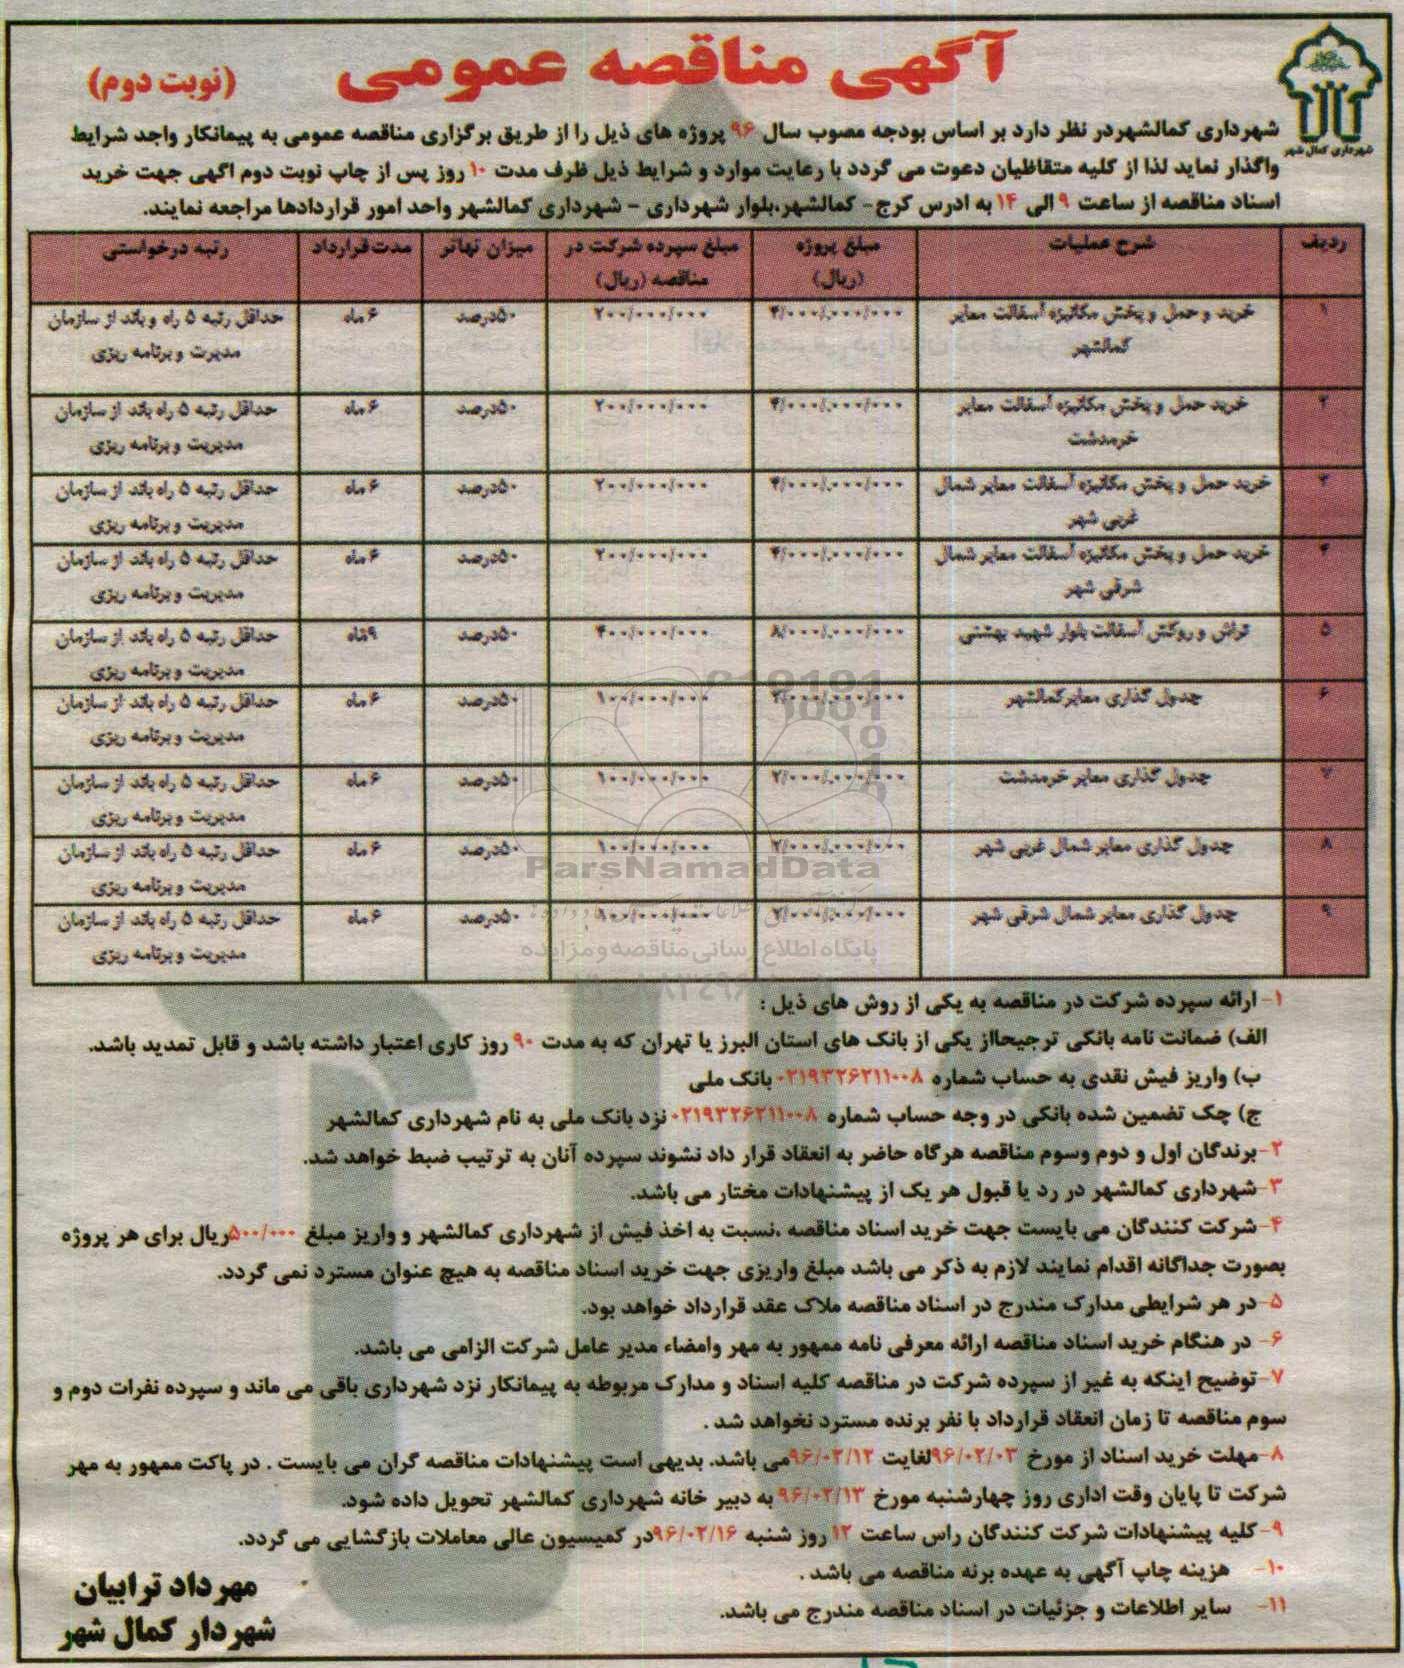 آگهی مناقصه عمومی
(نوبت دوم)
شهرداری کمال شهر
شهرداری کمالشهردر نظر دارد بر اساس بودجه مصوب سال ۹۶ پروژه های ذیل را از طریق برگزاری مناقصه عمومی به پیمانکار واجد شرایط
واگذار نماید لذا از کلیه متقاظیان دعوت می گردد با رعایت موارد و شرایط ذیل ظرف مدت ۱۰ روز پس از چاپ نوبت دوم آگهی جهت خرید
اسناد مناقصه از ساعت ۹ الی ۱۴ به ادرس کرج- کمالشهر،بلوار شهرداری - شهرداری کمالشهر واحد امور قراردادها مراجعه نمایند.
ردیف شرح عملیات مبلغ پروژه (ریال) مبلغ سپرده شرکت در مناقصه (ریال) میزان تهاتر مدت قرارداد رتبه درخواستی
۱ خرید و حمل و پخش مکانیزه آسفالت معابر کمالشهر ۴/۰۰۰/۰۰۰/۰۰۰ ۲۰۰/۰۰۰/۰۰۰ ۵۰درصد ۶ ماه حداقل رتبه ۵ راه و باند از سازمان مدیرت و برنامه ریزی
۲ خرید حمل و پخش مکانیزه آسفالت معابر خرمدشت ۴/۰۰۰/۰۰۰/۰۰۰ ۲۰۰/۰۰۰/۰۰۰ ۵۰درصد ۶ ماه حداقل رتبه ۵ راه باند از سازمان مدیریت و برنامه ریزی
۳ خرید حمل و پخش مکانیزه آسفالت معابر شمال غربی شهر ۴/۰۰۰/۰۰۰/۰۰۰ ۲۰۰/۰۰۰/۰۰۰ ۵۰درصد ۶ ماه حداقل رتبه ۵ راه باند از سازمان مدیریت و برنامه ریزی
۴ خرید حمل و پخش مکانیزه آسفالت معابر شمال شرقی شهر ۴/۰۰۰/۰۰۰/۰۰۰ ۲۰۰/۰۰۰/۰۰۰ ۵۰درصد ۶ ماه حداقل رتبه ۵ راه باند از سازمان مدیریت و برنامه ریزی
۵ تراش و روکش آسفالت بلوار شهید بهشتی ۸/۰۰۰/۰۰۰/۰۰۰ ۴۰۰/۰۰۰/۰۰۰ ۵۰درصد ۹ماه حداقل رتبه ۵ راه باند از سازمان مدیریت و برنامه ریزی
۶ جدول گذاری معابرکمالشهر ۲/۰۰۰/۰۰۰/۰۰۰ ۱۰۰/۰۰۰/۰۰۰ ۵۰درصد ۶ ماه حداقل رتبه ۵ راه باند از سازمان مدیریت و برنامه ریزی
۷ جدول گذاری معابر خرمدشت ۲/۰۰۰/۰۰۰/۰۰۰ ۱۰۰/۰۰۰/۰۰۰ ۵۰درصد ۶ ماه حداقل رتبه ۵ راه باند از سازمان مدیریت و برنامه ریزی
۸ جدول گذاری معابر شمال غربی شهر ۲/۰۰۰/۰۰۰/۰۰۰ ۱۰۰/۰۰۰/۰۰۰ ۵۰درصد ۶ ماه حداقل رتبه ۵ راه باند از سازمان مدیریت و برنامه ریزی
۹ جدول گذاری معابر شمال شرقی شهر ۲/۰۰۰/۰۰۰/۰۰۰ ۱۰۰/۰۰۰/۰۰۰ ۵۰درصد ۶ ماه حداقل رتبه ۵ راه باند از سازمان مدیریت و برنامه ریزی
ParsNamadData
پایگاه اطلاع رسانی مناقصه و مزایده
۱- ارائه سپرده شرکت در مناقصه به یکی از روش های ذیل :
الف) ضمانت نامه بانکی ترجیحااز یکی از بانک های استان البرز یا تهران که به مدت ۹۰ روز کاری اعتبار داشته باشد و قابل تمدید باشد.
ب) واریز فیش نقدی به حساب شماره ۰۲۱۹۳۲۶۲۱۱۰۰۸ بانک ملی
ج) چک تضمین شده بانکی در وجه حساب شماره ۰۲۱۹۳۲۶۲۱۱۰۰۸ نزد بانک ملی به نام شهرداری کمالشهر
۲-برندگان اول و دوم وسوم مناقصه هرگاه حاضر به انعقاد قرار داد نشوند سپرده آنان به ترتیب ضبط خواهد شد.
۳-شهرداری کمالشهر در رد یا قبول هر یک از پیشنهادات مختار می باشد.
۴-شرکت کنندگان می بایست جهت خرید اسناد مناقصه ،نسبت به اخذ فیش از شهرداری کمالشهر و واریز مبلغ ۵۰۰/۰۰۰ریال برای هر پروژه
بصورت جداگانه اقدام نمایند لازم به ذکر می باشد مبلغ واریزی جهت خرید اسناد مناقصه به هیچ عنوان مسترد نمی گردد.
۵-در هر شرایطی مدارک مندرج در اسناد مناقصه ملاک عقد قرارداد خواهد بود.
۶- در هنگام خرید اسناد مناقصه ارائه معرفی نامه ممهور به مهر وامضاء مدیر عامل شرکت الزامی می باشد.
۷-توضیح اینکه به غیر از سپرده شرکت در مناقصه کلیه اسناد و مدارک مربوطه به پیمانکار نزد شهرداری باقی می ماند و سپرده نفرات دوم و
سوم مناقصه تا زمان انعقاد قرارداد با نفر برنده مسترد نخواهد شد .
۸-مهلت خرید اسناد از مورخ ۹۶/۰۲/۰۳لغایت ۹۶/۰۲/۱۲می باشد. بدیهی است پیشنهادات مناقصه گران می بایست . در پاکت ممهور به مهر
شرکت تا پایان وقت اداری روز چهارشنبه مورخ ۹۶/۰۲/۱۳ به دبیر خانه شهرداری کمالشهر تحویل داده شود.
۹-کلیه پیشنهادات شرکت کنندگان راس ساعت ۱۲ روز شنبه ۹۶/۰۲/۱۶در کمیسیون عالی معاملات بازگشایی می گردد.
۱۰- هزینه چاپ آگهی به عهده برنه مناقصه می باشد .
۱۱- سایر اطلاعات و جزئیات در اسناد مناقصه مندرج می باشد.
مهرداد ترابیان
شهردار کمال شهر